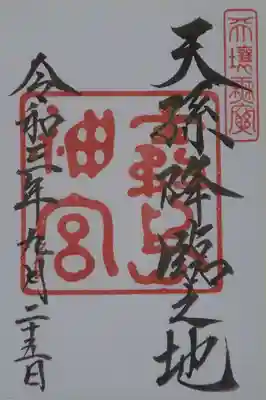 天孫降臨之地
霧島
神宮
令和三年九月二十五日